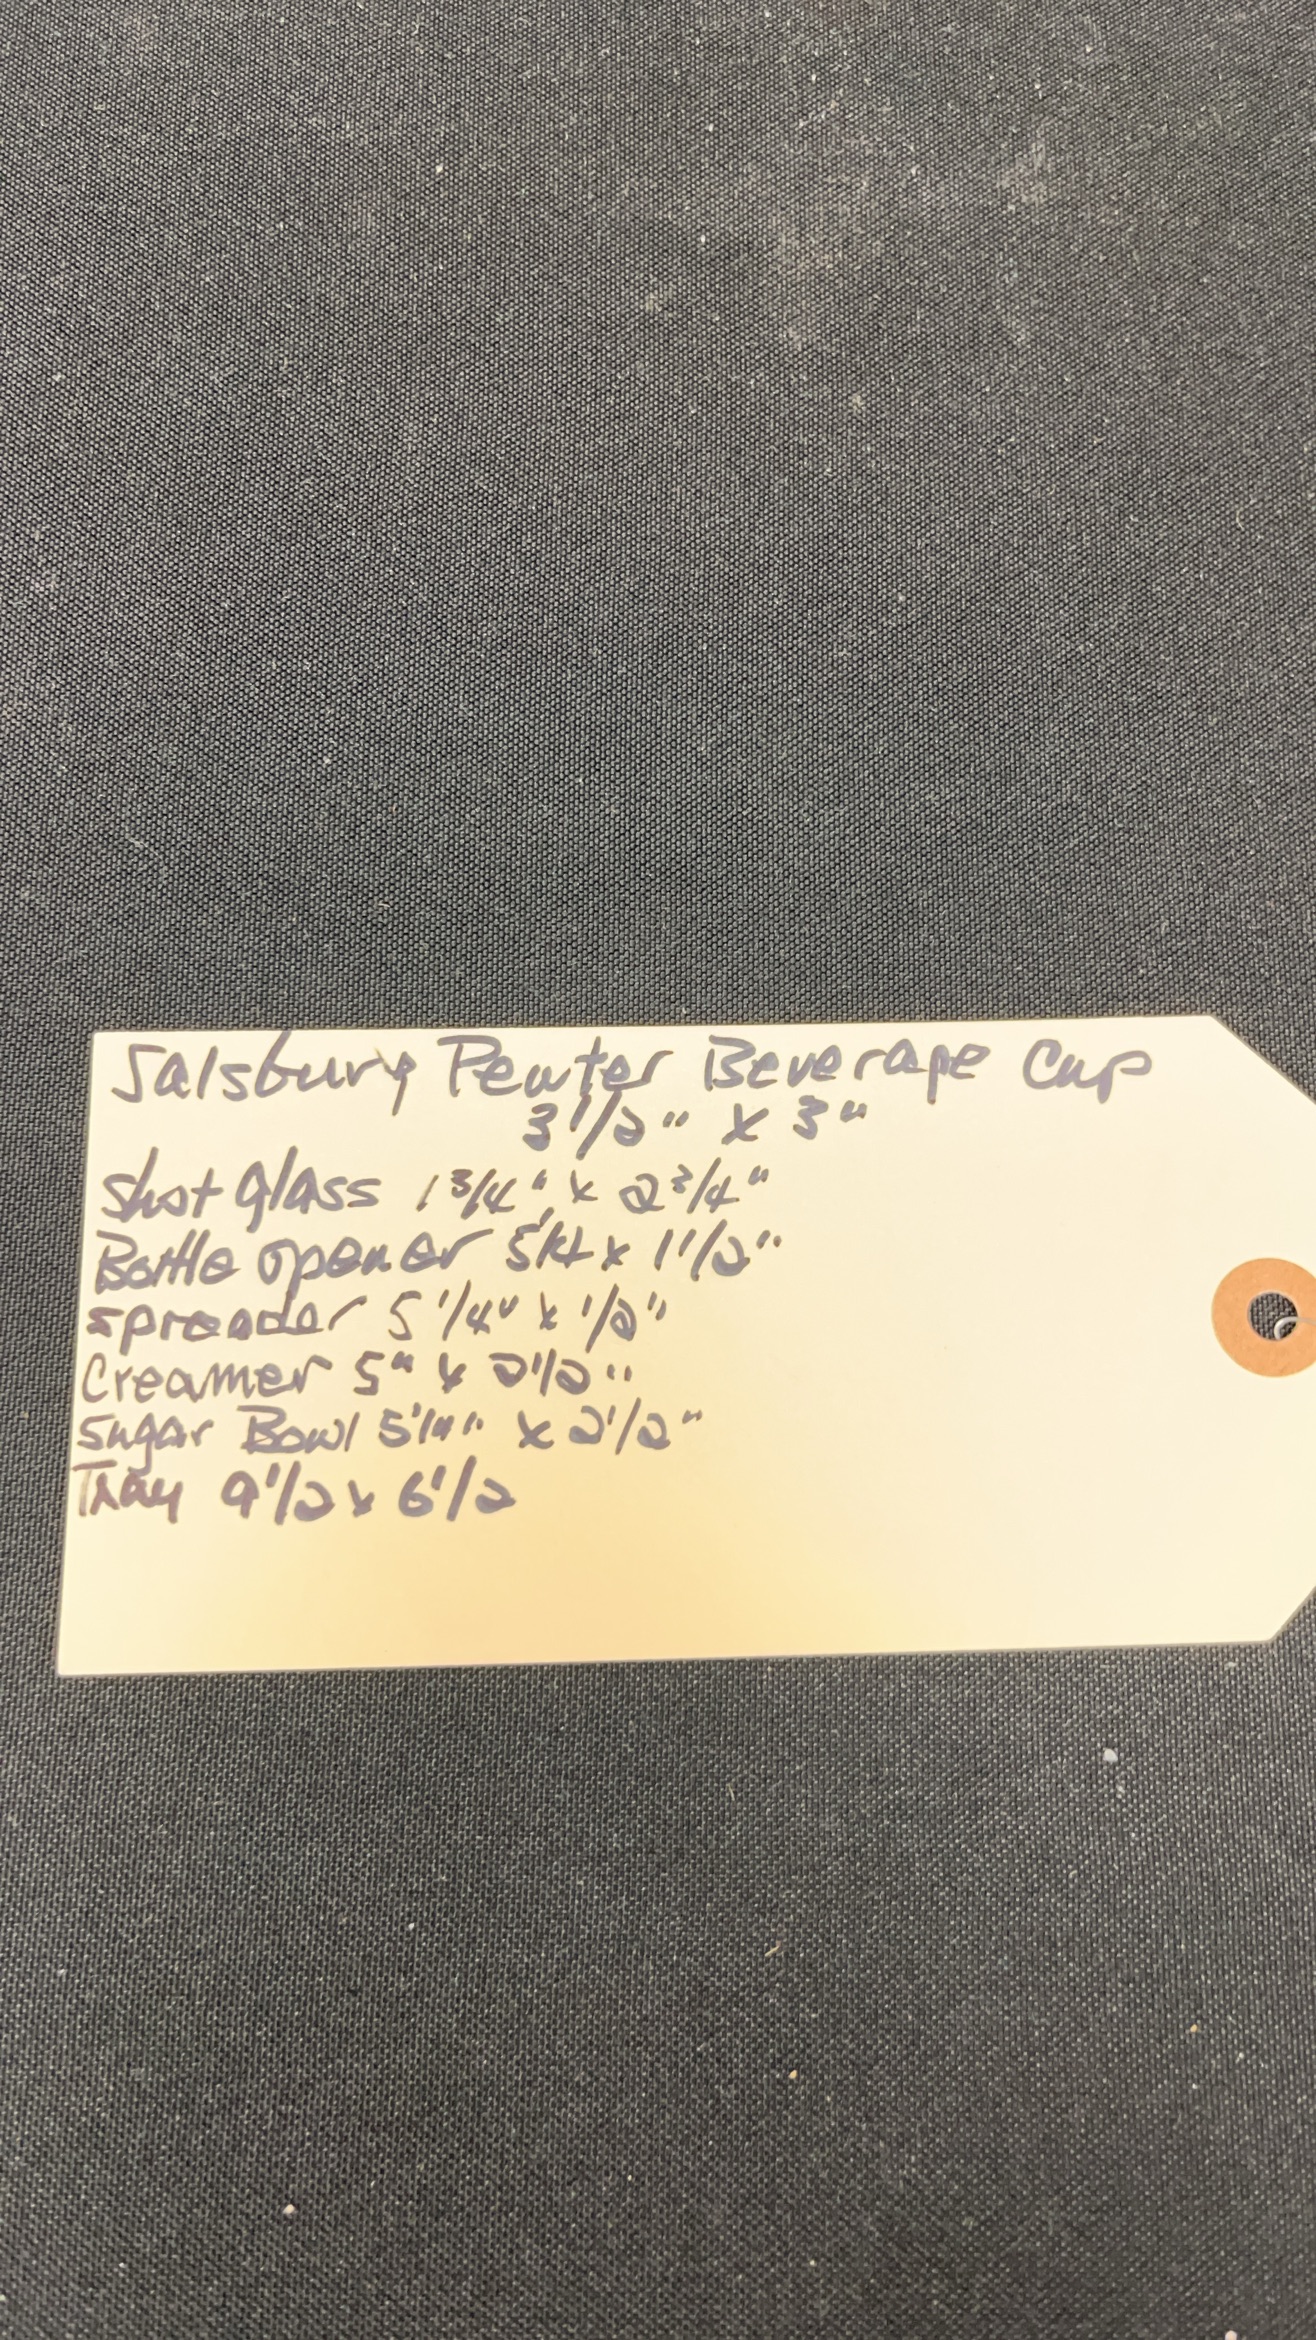 Salsbury Pewter Beverage Cup
3 1/2" x 3"
Shot glass 1 3/4" x 2 3/4"
Bottle opener x 1 1/2"
Spreader 5 1/4" x 1/2"
Creamer 5" x 2 1/2"
Sugar Bowl x 2 1/2"
Tray 9 1/2 x 6 1/2